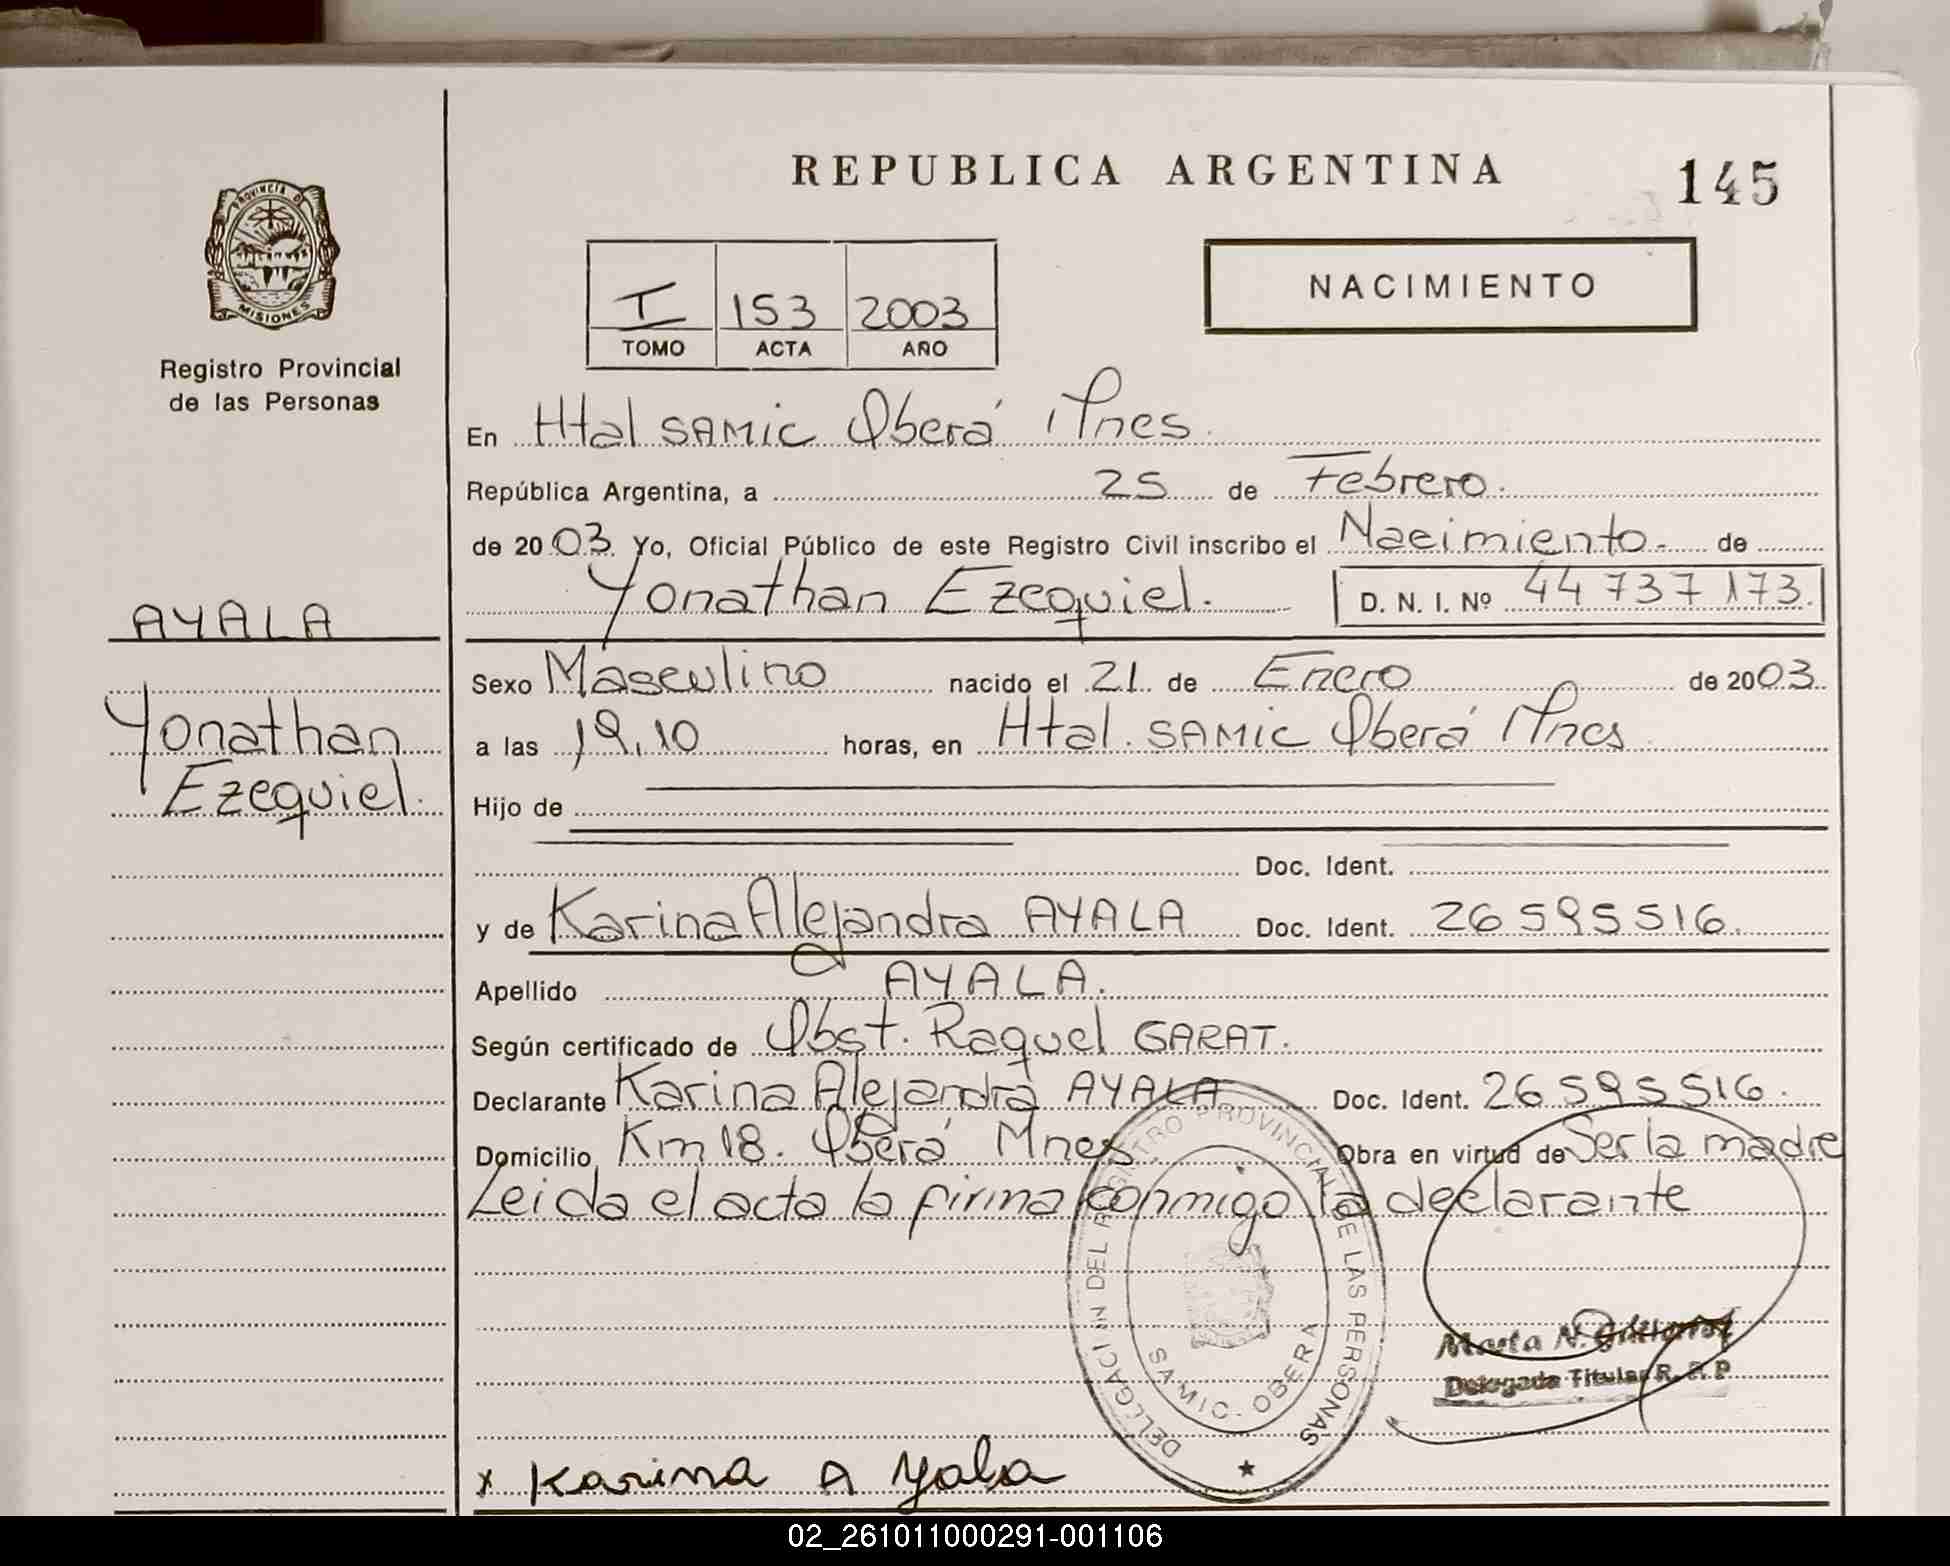 REPUBLICA ARGENTINA
145
PROVINCIA DE
MISIONES
Registro Provincial
de las Personas
I 153 2003
TOMO ACTA AÑO
NACIMIENTO
En Htal SAMIC Oberá Mnes.
República Argentina, a 25 de Febrero.
de 2003. Yo, Oficial Público de este Registro Civil inscribo el Nacimiento.- de
Yonathan Ezequiel. D. N. I. Nº 44 737 173.
AYALA
Yonathan
Ezequiel.
Sexo Masculino nacido el 21 de Enero de 2003.
a las 19,10 horas, en Htal. SAMIC Oberá Mnes
Hijo de
Doc. Ident.
y de Karina Alejandra AYALA Doc. Ident. 26 595 516.
Apellido AYALA.
Según certificado de Obst. Raquel GARAT.
Declarante Karina Alejandra AYALA Doc. Ident. 26 595 516.
Domicilio Km 18. Oberá Mnes Obra en virtud de Ser la madre
Leida el acta la firma conmigo la declarante
DELEGACI N DEL REGISTRO PROVINCIAL DE LAS PERSONAS
SAMIC - OBERA
Marta N.
Delegada Titular R. P. P
x Karina A Yala
02_261011000291-001106